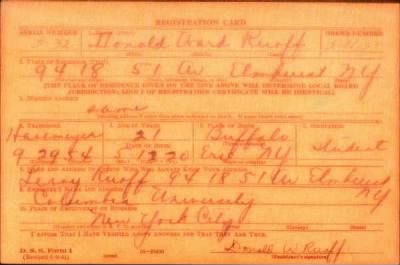 REGISTRATION CARD
SERIAL NUMBER
ORDER NUMBER
Donald Ward Ruoff
94 18 51 Av Elmhurst NY
(THE PLACE OF RESIDENCE GIVEN ON THE LINE ABOVE WILL DETERMINE LOCAL BOARD
JURISDICTION; LINE 2 OF REGISTRATION CERTIFICATE WILL BE IDENTICAL)
same
Havemeyer 21 Buffalo
9-2954 5 12 20 Erie NY Student
Leroy Ruoff 94 18 51 Av Elmhurst
NY
Columbia University
New York City
I AFFIRM THAT I HAVE VERIFIED ABOVE ANSWERS AND THAT THEY ARE TRUE.
D. S. S. Form 1
Donald W Ruoff